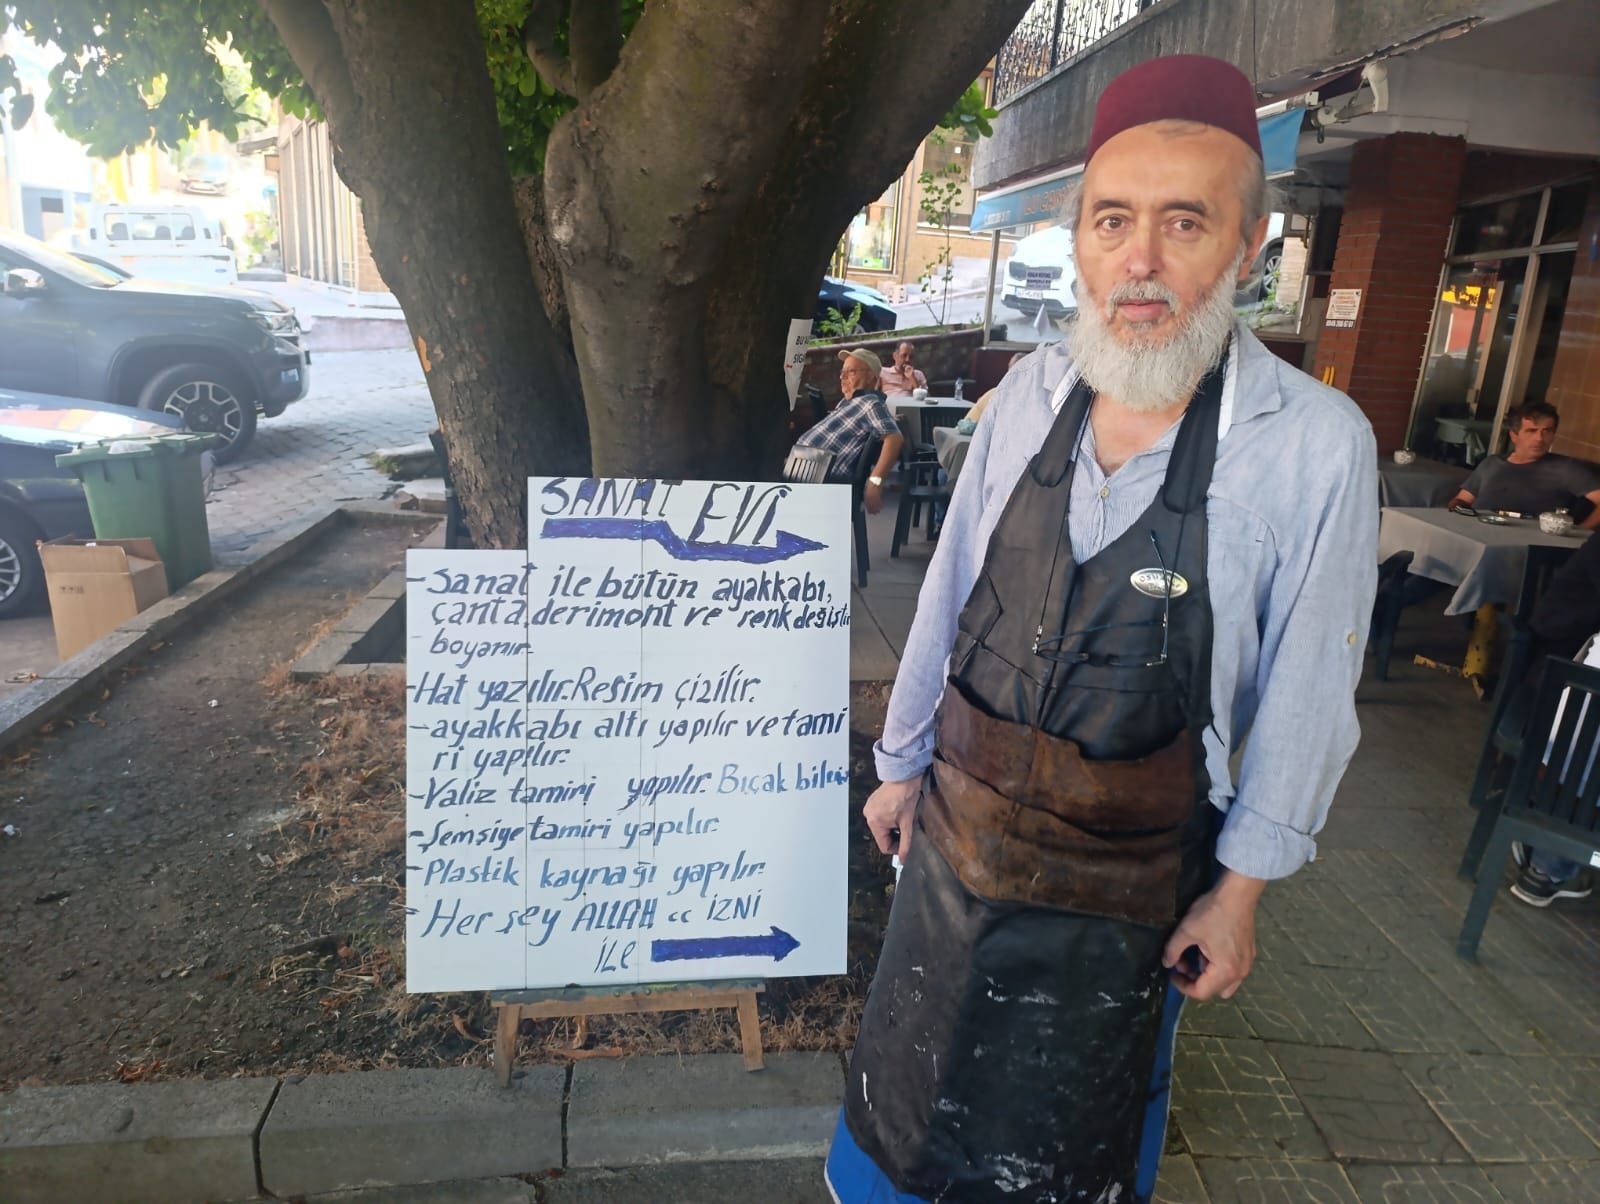 SANAT EVİ
- Sanat ile bütün ayakkabı,
çanta, derimont ve renk değiştir
boyanır.
- Hat yazılır. Resim çizilir.
- ayakkabı altı yapılır ve tami
ri yapılır.
- Valiz tamiri yapılır. Bıçak
- Şemsiye tamiri yapılır.
- Plastik kaynağı yapılır.
- Her şey ALLAH cc İZNİ
İLE